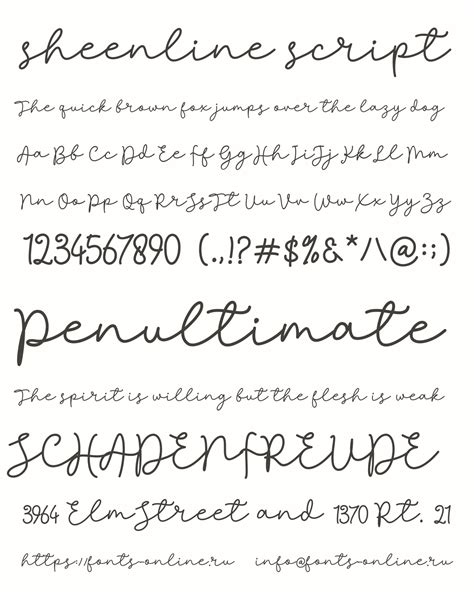 sheenline script
The quick brown fox jumps over the lazy dog
Aa Bb Cc Dd Ee Ff Gg Hh Ii Jj Kk Ll Mm
Nn Oo Pp Qq Rr Ss Tt Uu Vv Ww Xx Yy Zz
1234567890 (.,!?#$%&*/\@:;)
Penultimate
The spirit is willing but the flesh is weak
SCHADENFREUDE
3964 Elm Street and 1370 Rt. 21
https://fonts-online.ru info@fonts-online.ru